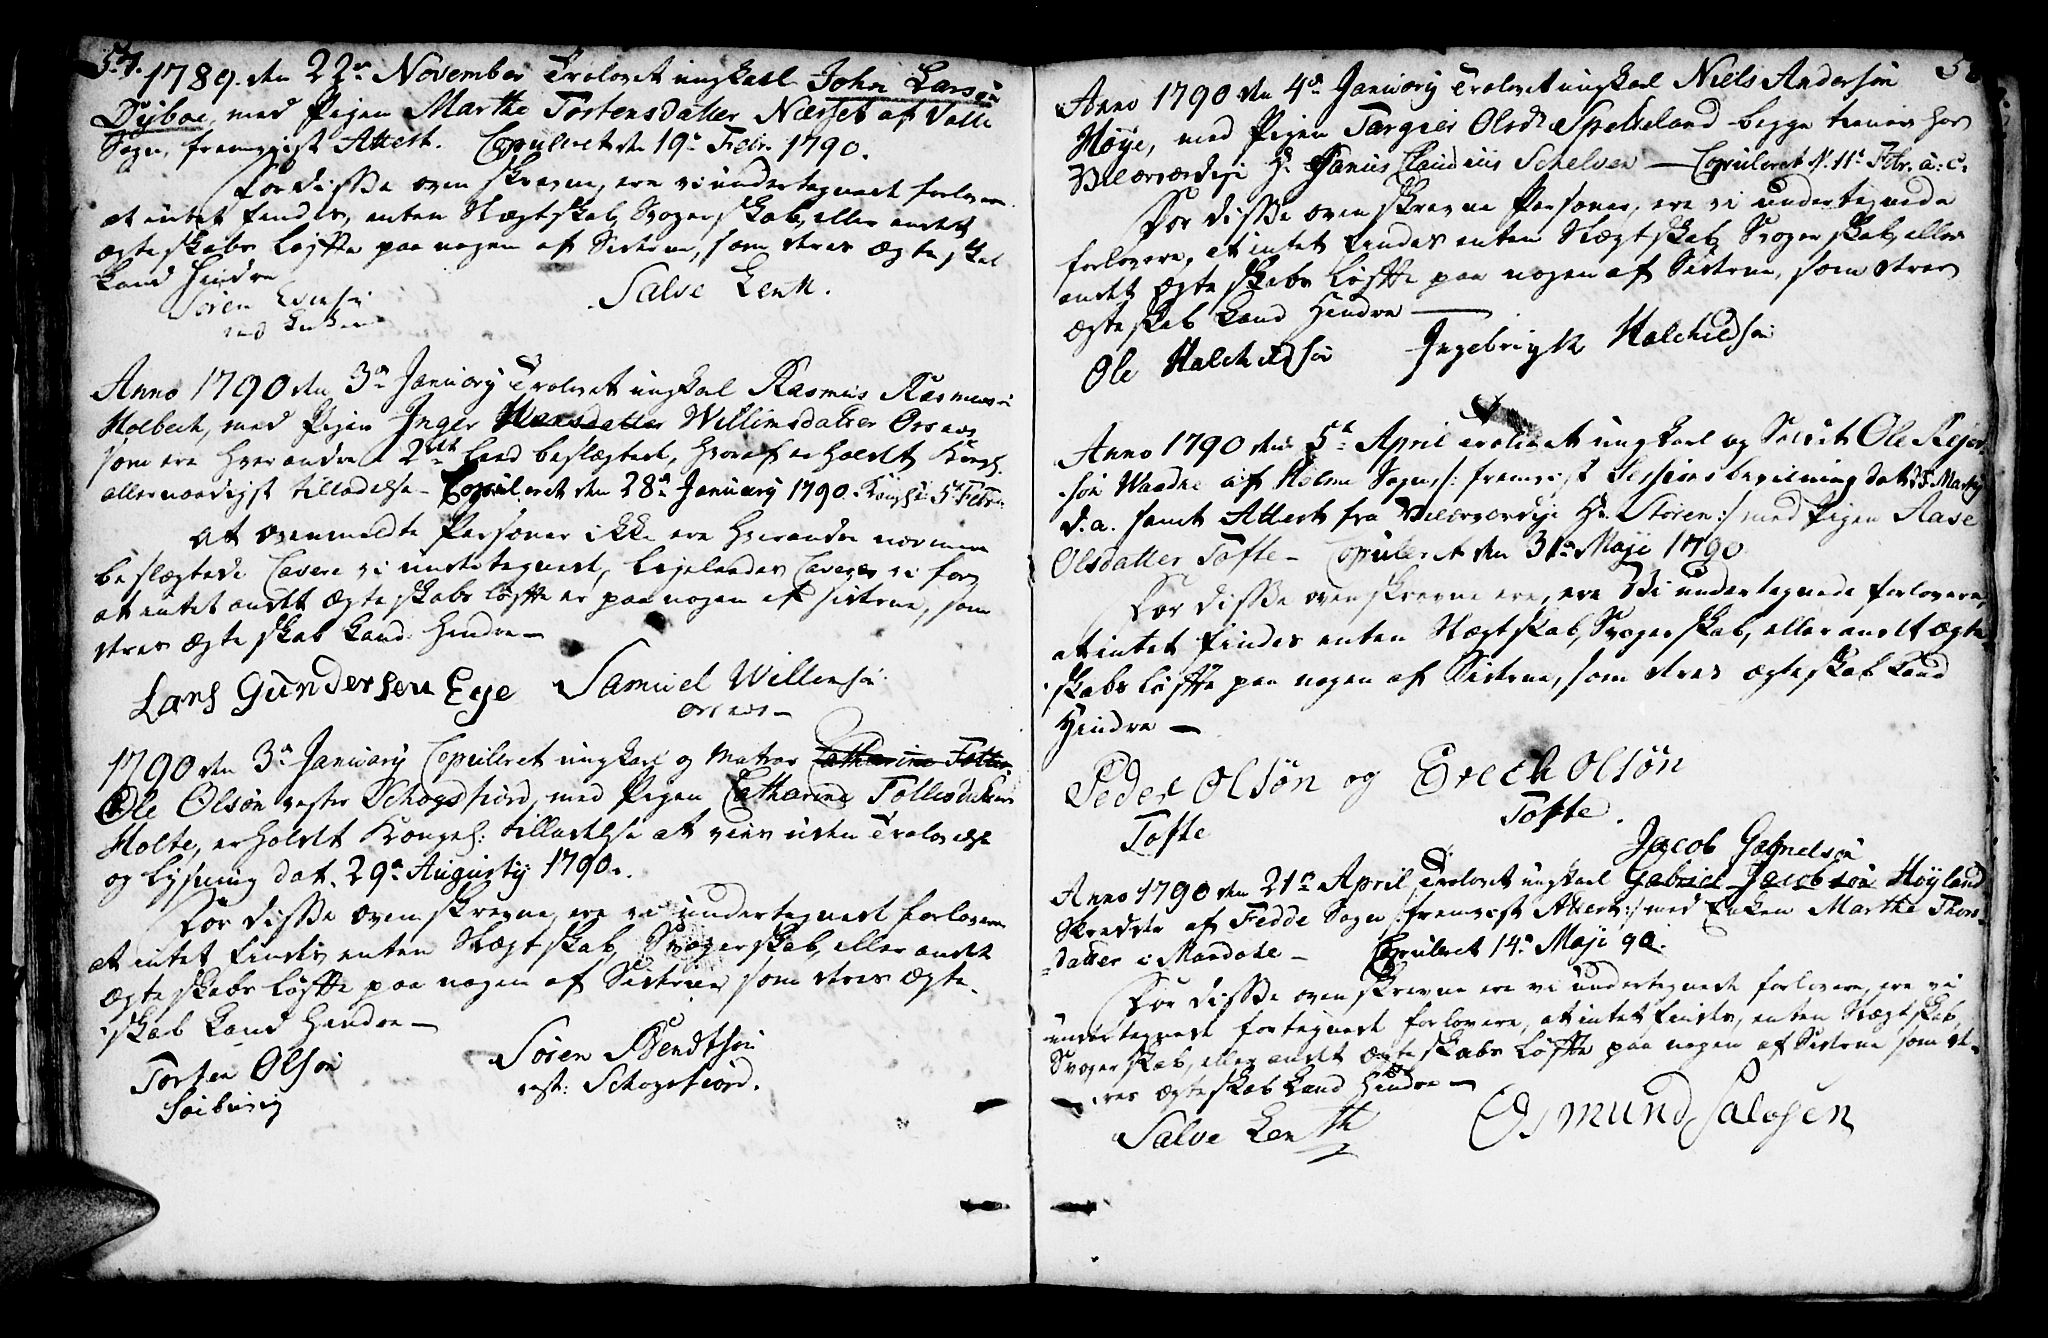 57.
1789. den 22de November Trolovet ungkarl John Larsøn
Dyboe, med Pigen Marthe Torstensdatter Næsset af Valle
Sogn, fremviist Attest. Copuleret den 19de Febr. 1790.
For disse oven skrevne, ere vi undertegnede forlovere
at intet findes, enten Slægtskab, Svogerskab, eller andet
Ægteskabs Løffte paa nogen af Siderne, som deres Ægteskab
kand Hindre
Søren
Salve Lenth.
Anno 1790 den 3de January Trolovet ungkarl Rasmus Rasmussøn
Holbech, med Pigen Inger Hansdatter Willumsdatter Orenes
som ere hverandre i 2det Leed beslægtede, hvoraf er holdt Kongl.
allernaadigst tilladelse - Copuleret den 28de January 1790.
At ovenmeldte Personer ikke ere hverandre nærmere
beslægtede Cavere vi undertegnede, ligeledes Caverer vi for,
at intet andet Ægteskabs løffte er paa nogen af siderne, som
deres Ægteskab kand Hindre -
Lars Gundersen Eye
Samuel Willumsøn
Orenes -
1790 den 3de January Copuleret ungkarl og Matros Catharine Tolles
Ole Olsøn vester Schogsfiord, med Pigen Catharine Tollesdatter
Holte, erholdt Kongel: tilladelse at vies uden Trolovelse
og Lysning dat. 29de Augusty 1790.
For disse oven skrevne, ere vi undertegnede forlovere
at intet findes enten Slægtskab, Svogerskab, eller andet
Ægteskabs løffte paa nogen af Siderne, som deres Ægte-
skab kand Hindre -
Torsten Olsøn
Søren Bendtsøn
vest: Schogsfiord.
Anno 1790 den 4de January Trolovet ungkarl Niels Andersøn
Høye, med Pigen Targier Olsdr Spetteland begge tiener hos
Velærværdige Hr. Janus Claudius Schelven - Copuleret d. 11te Febr. a: c.
For disse oven skrevne Personer, ere vi undertegnede
forlovere, at intet findes enten Slægtskab, Svogerskab, eller
andet Ægteskabs Løffte paa nogen af Siderne, som deres
Ægteskab kand Hindre -
Ole Halchildsøn
Ingebrigt Halchildsøn
Anno 1790 den 5te April trolovet ungkarl og Soldat Ole Rejer-
søn Waadne af Holme Sogn /: fremviist Sessions bevilning dat. 23 Marty
d. a. samt Attest fra Velærværdige Hr. Støren :/ med Pigen Aase
Olsdatter Tofte - Copuleret den 31te Maji 1790
For disse oven skrevne ere, ere Vi undertegnede forlovere,
at intet findes enten Slægtskab, Svogerskab, eller andet Ægte-
skabs løffte paa nogen af Siderne, som deres Ægteskab kand
Hindre -
Peder Olsøn og Erech Olsøn
Tofte
Tofte.
Jacob Gabrielsøn
Anno 1790 den 21de April Trolovet ungkarl Gabriel Jacobsøn Høyland
Skredder af Fedde Sogn, /: fremviist Attest :/ med Enken Marthe Thors-
datter i Mandahl - Copuleret 14de Maji 90.
For disse oven skrevne ere vi undertegnede forlovere, ere vi
undertegnede fortegnede forlovere, at intet findes, enten Slægtskab,
Svogerskab, eller andet Ægteskabs Løffte paa nogen af Siderne som de-
res Ægteskab kand Hindre -
Salve Lenth
Osmund Salvesen